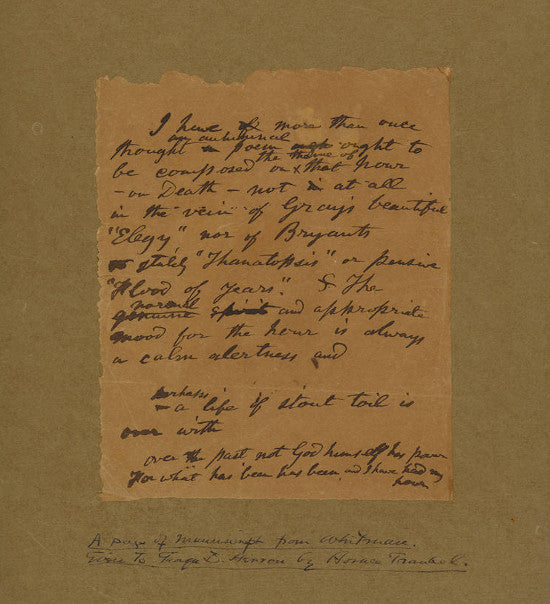 I have more than once
an autumnal
thought poem ought to
the theme of
be composed on that hour
— on Death — not in at all
in the vein of Gray's beautiful
"Elegy" nor of Bryants
stately "Thanatopsis" or pensive
"Flood of Years". The
normal
genuine spirit and appropriate
mood for the hour is always
a calm alertness and
perhaps
— a life of stout toil is
over with
over the past not God himself has power
For what has been has been and I have had my
hour
A page of manuscript from Whitman.
Given to by Horace Traubel.